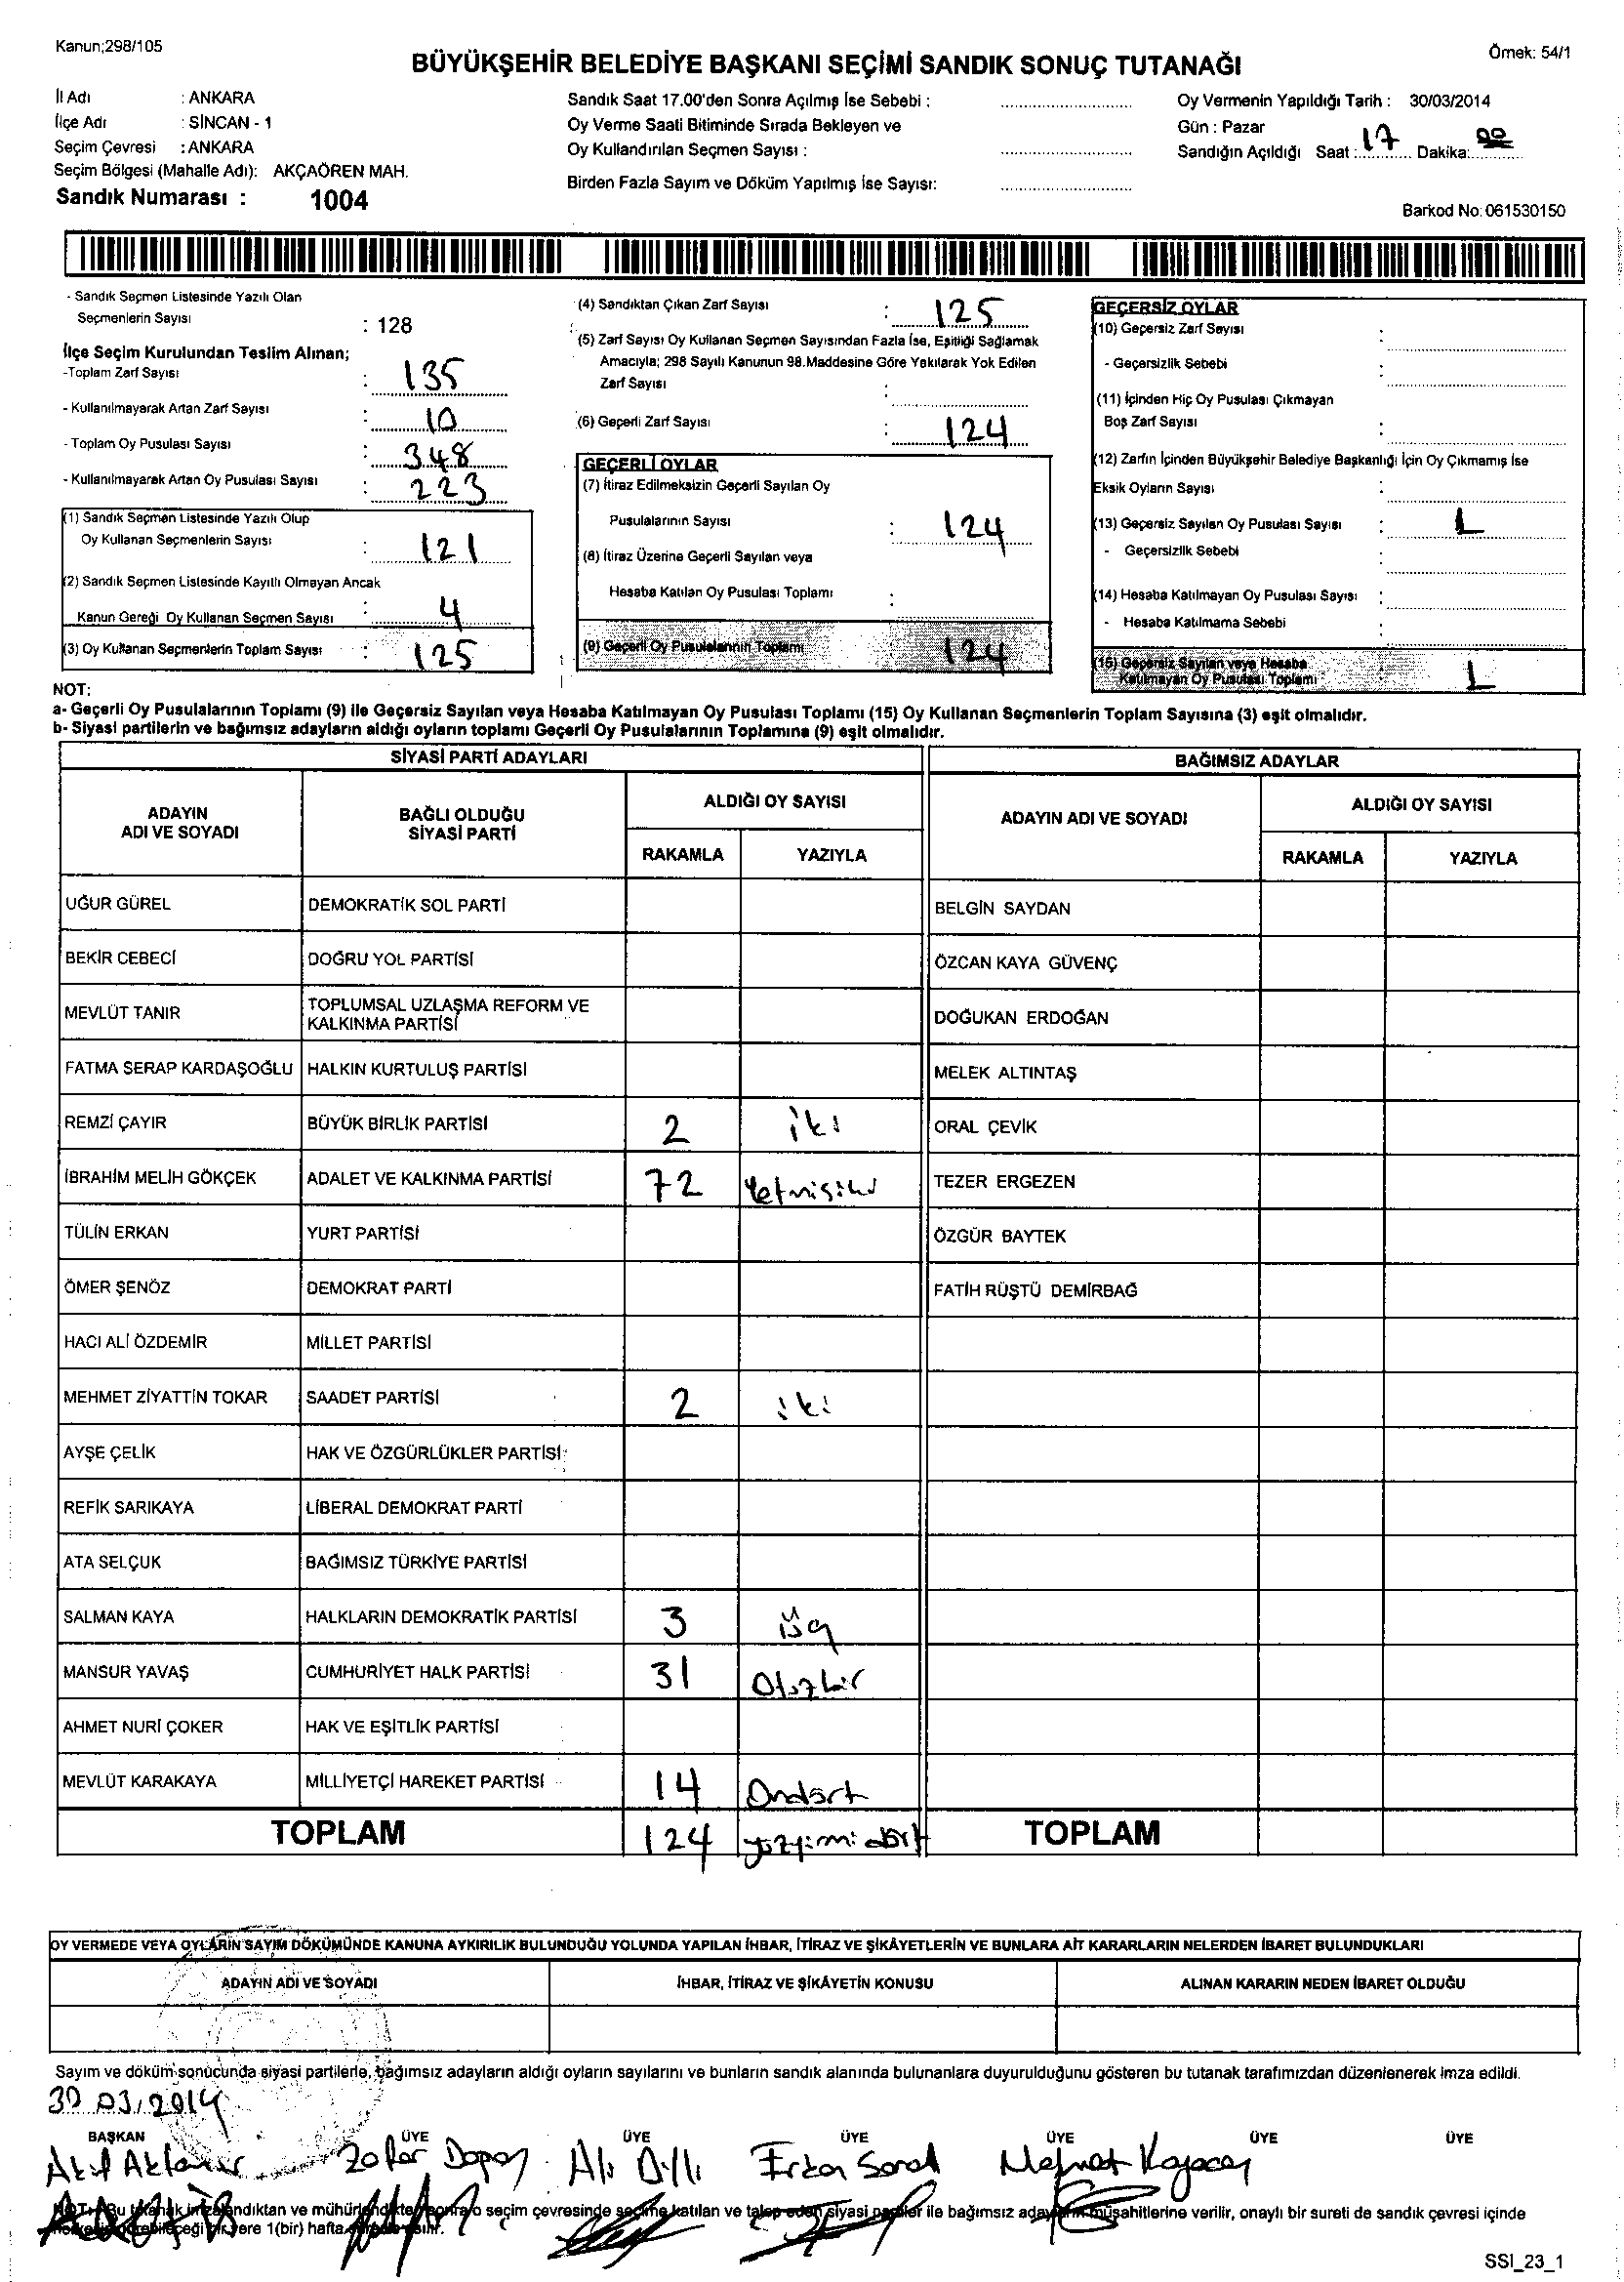 Kanun;298/105
Örnek: 54/1
BÜYÜKŞEHİR BELEDİYE BAŞKANI SEÇİMİ SANDIK SONUÇ TUTANAĞI
İl Adı : ANKARA
İlçe Adı : SİNCAN - 1
Seçim Çevresi : ANKARA
Seçim Bölgesi (Mahalle Adı): AKÇAÖREN MAH.
Sandık Numarası : 1004
Sandık Saat 17.00'den Sonra Açılmış İse Sebebi :
Oy Verme Saati Bitiminde Sırada Bekleyen ve
Oy Kullandırılan Seçmen Sayısı :
Birden Fazla Sayım ve Döküm Yapılmış İse Sayısı:
Oy Vermenin Yapıldığı Tarih : 30/03/2014
Gün : Pazar
Sandığın Açıldığı Saat : 17 Dakika: 00
Barkod No: 061530150
- Sandık Seçmen Listesinde Yazılı Olan
Seçmenlerin Sayısı : 128
İlçe Seçim Kurulundan Teslim Alınan;
-Toplam Zarf Sayısı : 135
- Kullanılmayarak Artan Zarf Sayısı : 10
- Toplam Oy Pusulası Sayısı : 348
- Kullanılmayarak Artan Oy Pusulası Sayısı : 223
(1) Sandık Seçmen Listesinde Yazılı Olup
Oy Kullanan Seçmenlerin Sayısı : 121
(2) Sandık Seçmen Listesinde Kayıtlı Olmayan Ancak
Kanun Gereği Oy Kullanan Seçmen Sayısı : 4
(3) Oy Kullanan Seçmenlerin Toplam Sayısı : 125
(4) Sandıktan Çıkan Zarf Sayısı : 125
(5) Zarf Sayısı Oy Kullanan Seçmen Sayısından Fazla İse, Eşitliği Sağlamak
Amacıyla; 298 Sayılı Kanunun 98.Maddesine Göre Yakılarak Yok Edilen
Zarf Sayısı :
(6) Geçerli Zarf Sayısı : 124
GEÇERLİ OYLAR
(7) İtiraz Edilmeksizin Geçerli Sayılan Oy
Pusulalarının Sayısı : 124
(8) İtiraz Üzerine Geçerli Sayılan veya
Hesaba Katılan Oy Pusulası Toplamı :
(9) Geçerli Oy Pusulalarının Toplamı 124
GEÇERSİZ OYLAR
(10) Geçersiz Zarf Sayısı :
- Geçersizlik Sebebi :
(11) İçinden Hiç Oy Pusulası Çıkmayan
Boş Zarf Sayısı :
(12) Zarfın İçinden Büyükşehir Belediye Başkanlığı İçin Oy Çıkmamış İse
Eksik Oyların Sayısı :
(13) Geçersiz Sayılan Oy Pusulası Sayısı : 1
- Geçersizlik Sebebi
(14) Hesaba Katılmayan Oy Pusulası Sayısı :
- Hesaba Katılmama Sebebi :
(15) Geçersiz Sayılan veya Hesaba
Katılmayan Oy Pusulası Toplamı : 1
NOT:
a- Geçerli Oy Pusulalarının Toplamı (9) ile Geçersiz Sayılan veya Hesaba Katılmayan Oy Pusulası Toplamı (15) Oy Kullanan Seçmenlerin Toplam Sayısına (3) eşit olmalıdır.
b- Siyasi partilerin ve bağımsız adayların aldığı oyların toplamı Geçerli Oy Pusulalarının Toplamına (9) eşit olmalıdır.
SİYASİ PARTİ ADAYLARI
ADAYIN ADI VE SOYADI
BAĞLI OLDUĞU SİYASİ PARTİ
ALDIĞI OY SAYISI
RAKAMLA YAZIYLA
UĞUR GÜREL DEMOKRATİK SOL PARTİ
BEKİR CEBECİ DOĞRU YOL PARTİSİ
MEVLÜT TANIR TOPLUMSAL UZLAŞMA REFORM VE KALKINMA PARTİSİ
FATMA SERAP KARDAŞOĞLU HALKIN KURTULUŞ PARTİSİ
REMZİ ÇAYIR BÜYÜK BİRLİK PARTİSİ 2 iki
İBRAHİM MELİH GÖKÇEK ADALET VE KALKINMA PARTİSİ 72 Yetmişiki
TÜLİN ERKAN YURT PARTİSİ
ÖMER ŞENÖZ DEMOKRAT PARTİ
HACI ALİ ÖZDEMİR MİLLET PARTİSİ
MEHMET ZİYATTİN TOKAR SAADET PARTİSİ 2 iki
AYŞE ÇELİK HAK VE ÖZGÜRLÜKLER PARTİSİ
REFİK SARIKAYA LİBERAL DEMOKRAT PARTİ
ATA SELÇUK BAĞIMSIZ TÜRKİYE PARTİSİ
SALMAN KAYA HALKLARIN DEMOKRATİK PARTİSİ 3 üç
MANSUR YAVAŞ CUMHURİYET HALK PARTİSİ 31 Otuzbir
AHMET NURİ ÇOKER HAK VE EŞİTLİK PARTİSİ
MEVLÜT KARAKAYA MİLLİYETÇİ HAREKET PARTİSİ 14 Ondört
TOPLAM 124 yüzyirmi dört
BAĞIMSIZ ADAYLAR
ADAYIN ADI VE SOYADI
ALDIĞI OY SAYISI
RAKAMLA YAZIYLA
BELGİN SAYDAN
ÖZCAN KAYA GÜVENÇ
DOĞUKAN ERDOĞAN
MELEK ALTINTAŞ
ORAL ÇEVİK
TEZER ERGEZEN
ÖZGÜR BAYTEK
FATİH RÜŞTÜ DEMİRBAĞ
TOPLAM
OY VERMEDE VEYA OYLARIN SAYIM DÖKÜMÜNDE KANUNA AYKIRILIK BULUNDUĞU YOLUNDA YAPILAN İHBAR, İTİRAZ VE ŞİKÂYETLERİN VE BUNLARA AİT KARARLARIN NELERDEN İBARET BULUNDUKLARI
ADAYIN ADI VE SOYADI İHBAR, İTİRAZ VE ŞİKÂYETİN KONUSU ALINAN KARARIN NEDEN İBARET OLDUĞU
Sayım ve döküm sonucunda siyasi partilerle, bağımsız adayların aldığı oyların sayılarını ve bunların sandık alanında bulunanlara duyurulduğunu gösteren bu tutanak tarafımızdan düzenlenerek imza edildi.
30.03.2014
BAŞKAN ÜYE ÜYE ÜYE ÜYE ÜYE ÜYE
Akif Zafer Ali Erkan Mehmet
NOT: Bu tutanak imzalandıktan ve mühürlendikten sonra o seçim çevresinde seçime katılan ve talep eden siyasi partiler ile bağımsız adayların müşahitlerine verilir, onaylı bir sureti de sandık çevresi içinde
bir yere 1(bir) hafta
SSI_23_1